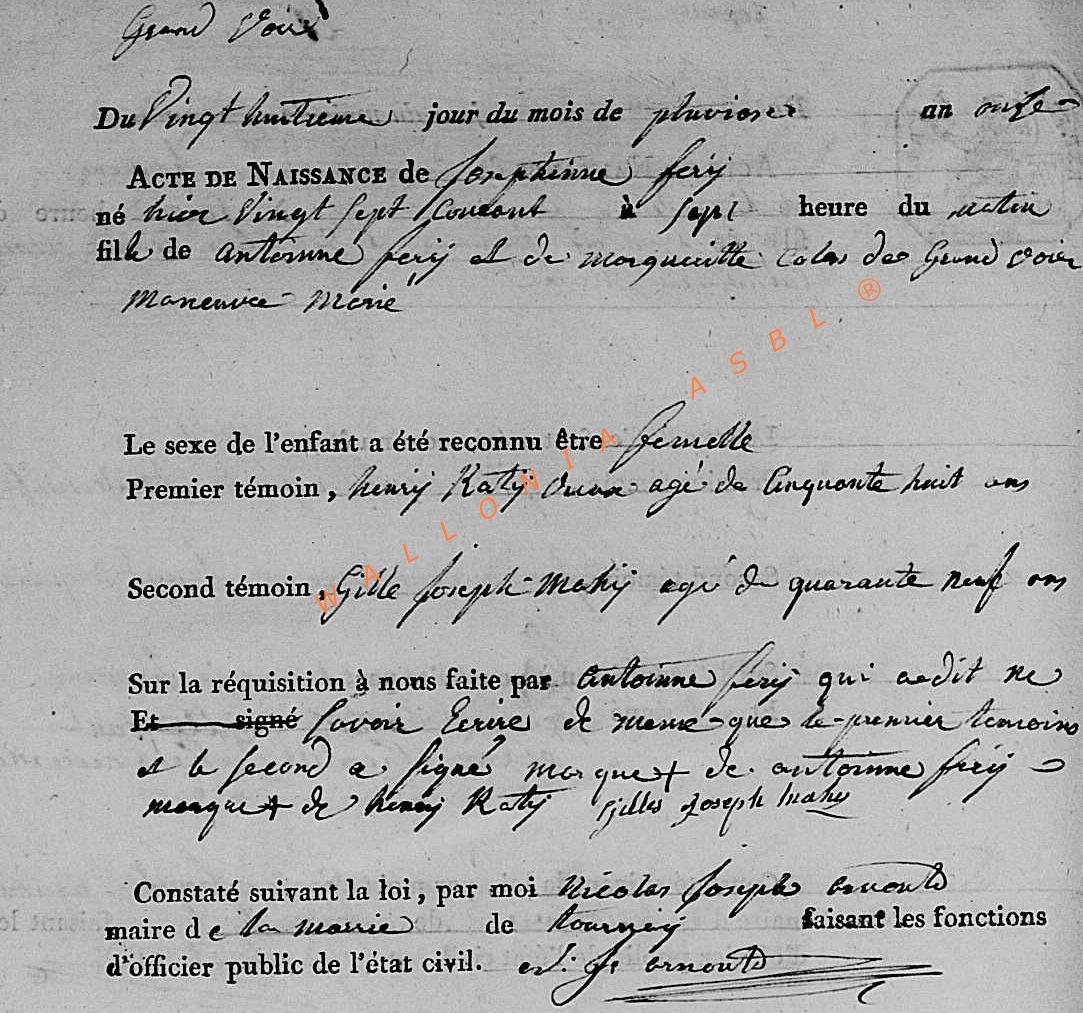 Grand Voir
Du Vingt huitieme jour du mois de pluviose an onze
ACTE DE NAISSANCE de Josephinne ferij
né hier Vingt sept Courant à sept heure du matin
fille de antoinne ferij et de margueritte Colas de Grand voir
Maneuvre Marié
Le sexe de l'enfant a été reconnu être femelle
Premier témoin, henrij Katij agé de Cinquante huit ans
Second témoin, Gille joseph Mahij agé de quarante neuf ans
Sur la réquisition à nous faite par antoinne ferij qui a dit ne
Et signé Savoir Ecrire de meme que le premier temoins
et le second a signé marque + de antoinne ferij
marque + de henrij Katij Gilles Joseph Mahij
Constaté suivant la loi, par moi Nicolas Joseph arnould
maire de la mairie de tournaij faisant les fonctions
d'officier public de l'état civil. arnould
WALLONIA ASBL ®